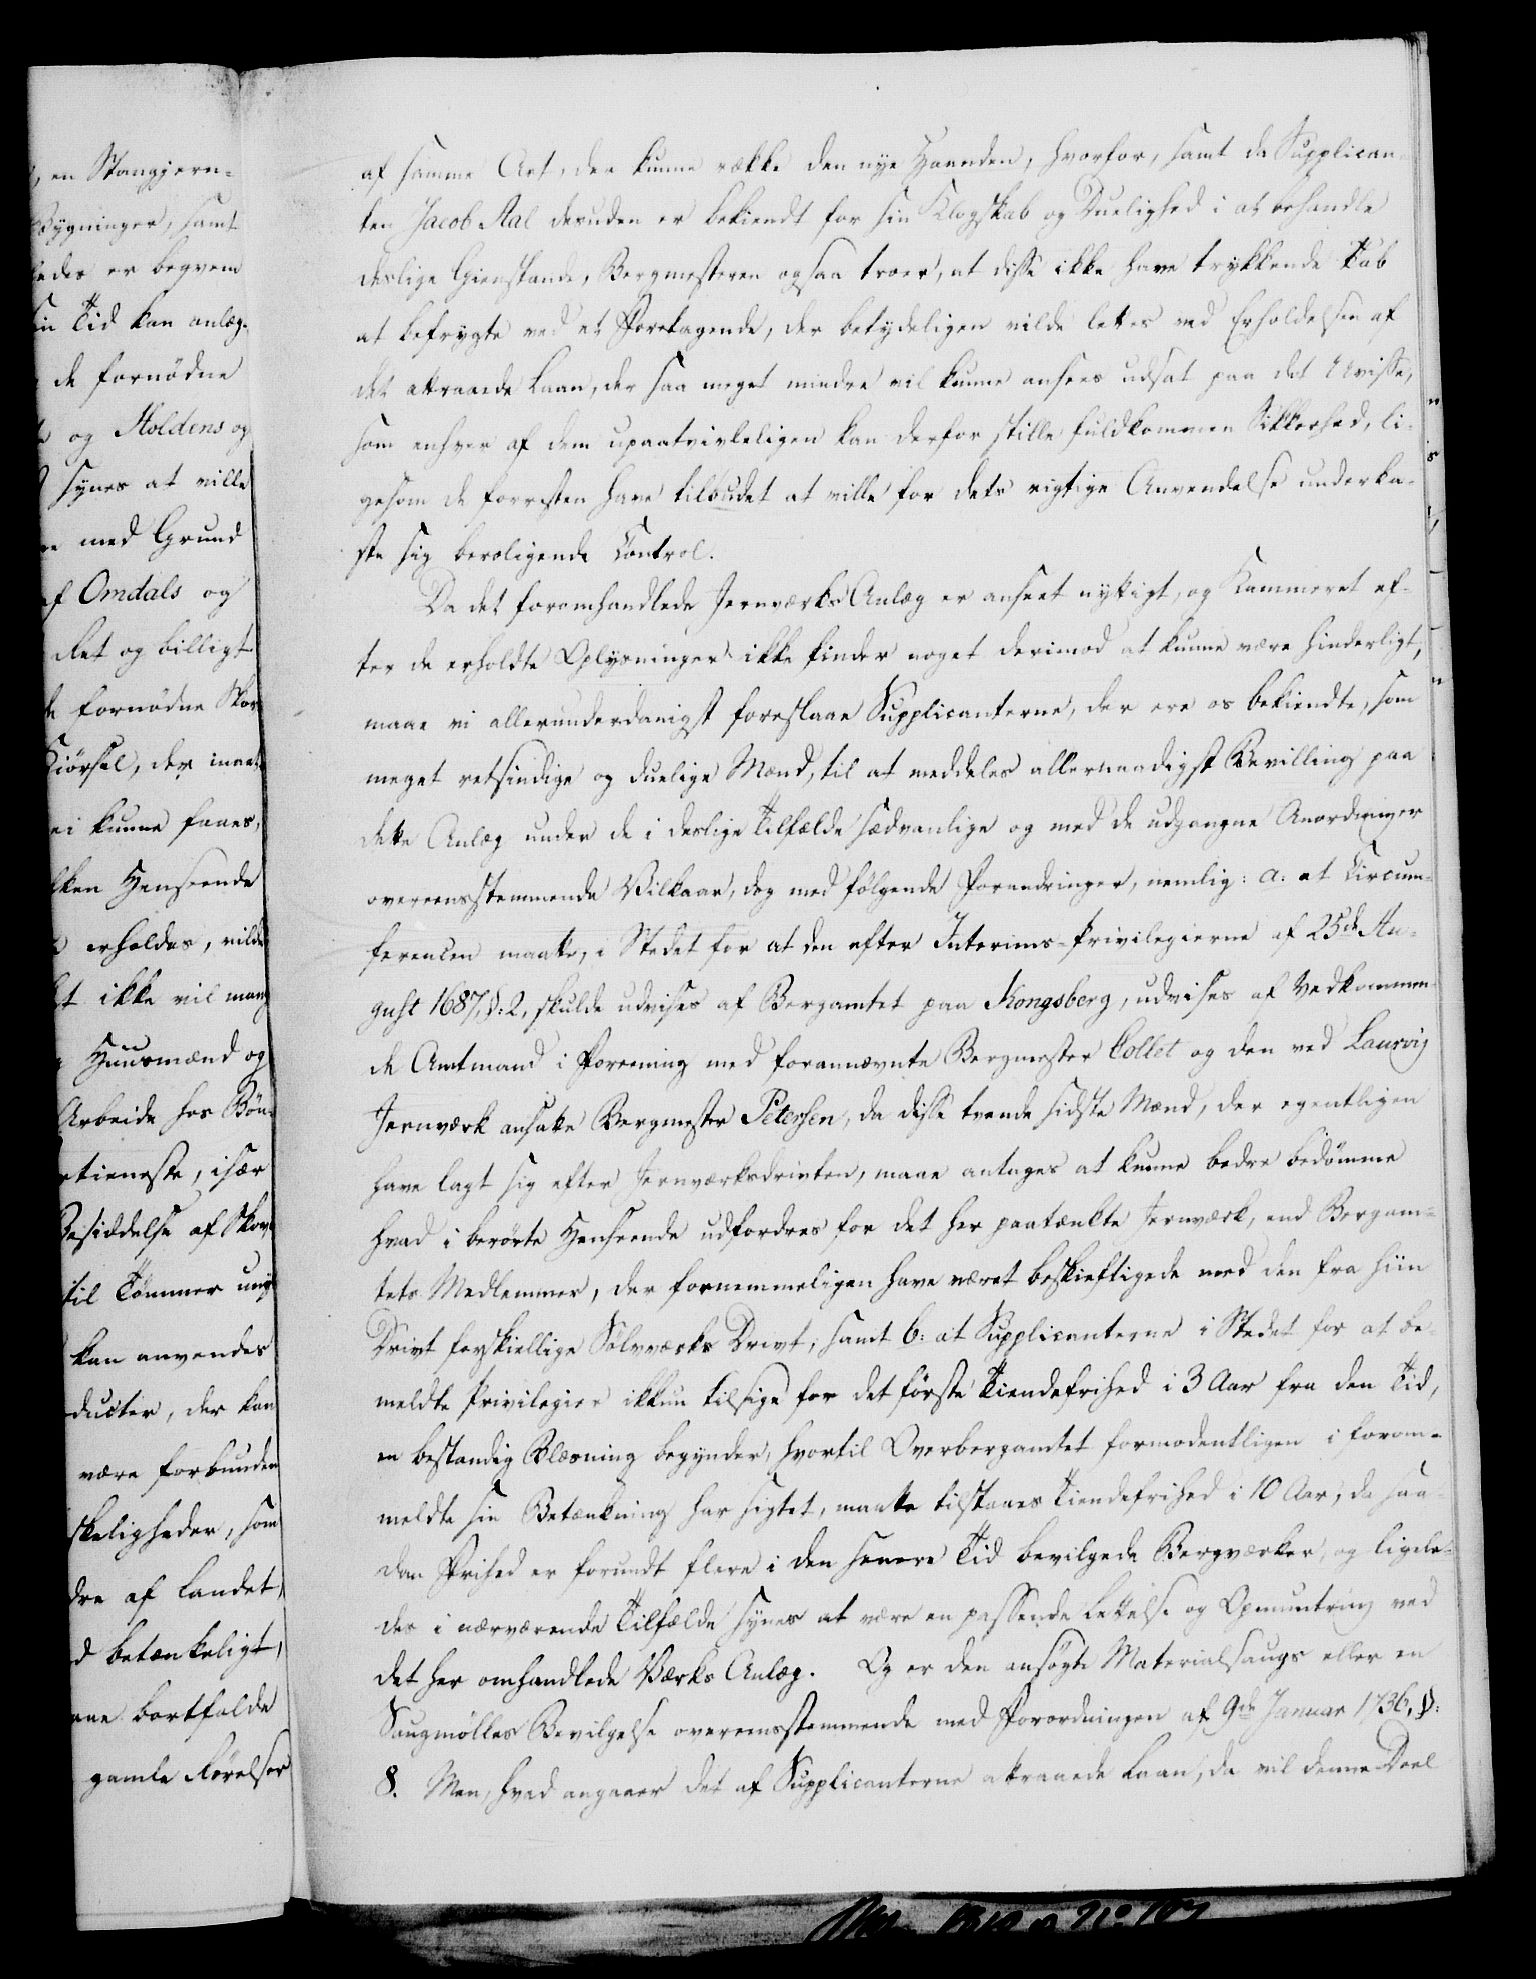 en Stangjern-
Bygninger, samt
ledes er beqvem
sin Tid kan anlæg-
de fornödne
og Holdens og
synes at ville
med Grund
af Omdals og
let og billigt
de fornödne Skov
Kiörsel, der
ei kunne faaes,
Henseende
erholdes, vilde
ikke vil mang
Huusmænd og
Arbeide hos Bön-
tieneste, især
Besiddelse af Skov
til Tömmer
kan anvendes
ducter, der kan
være forbunden
skeligheder, som
dre af Landet,
betænkeligt,
bortfalde
gamle
af samme Art, der kunne række den nye Haanden, hvorfor, samt da Supplican-
ten Jacob Aal desuden er bekiendt for sin Klogskab og Duelighed i at behandle
deslige Gienstande, Bergmesteren ogsaa troer, at disse ikke have trykkende Tab
at befrygte ved et Foretagende, der betydeligen vilde lettes ved Erholdelsen af
det attraaede Laan, der saa meget mindre vil kunne ansees udsat paa det Uvisse,
som enhver af dem upaatvivleligen kan derfor stille fuldkommen Sikkerhed, li-
gesom de forresten have tilbudet at ville for dets rigtige Anvendelse underka-
ste sig beroligende Control.
Da det foromhandlede Jernværks Anlæg er anseet nyttigt, og Kammeret ef-
ter de erholdte Oplysninger ikke finder noget derimod at kunne være hinderligt,
maae vi allerunderdanigst foreslaae Supplicanterne, der ere os bekiendte, som
meget retsindige og duelige Mænd, til at meddeles allernaadigst Bevilling paa
dette Anlæg under de i deslige Tilfælde sædvanlige og med de udgangne Anordninger
overeensstemmende Vilkaar, dog med fölgende Forandringer, nemlig: a. at Circum-
ferencen maatte, i Stedet for at den efter Interims-Privilegierne af 25de Au-
gust 1687, §: 2, skulde udvises af Bergamtet paa Kongsberg, udvises af Vedkommen-
de Amtmand i Forening med forannævnte Bergmester Collet og den ved Laurvig
Jernværk ansatte Bergmester Petersen, da disse tvende sidste Mænd, der egentligen
have lagt sig efter Jernværksdrivten, maae antages at kunne bedre bedömme
hvad i berörte Henseende udfordres for det her paatænkte Jernværk, end Bergam-
tets Medlemmer, der fornemmeligen have været beskieftigede med den fra hiin
Drivt forskiellige Sölvværks Drivt; samt b: at Supplicanterne i Stedet for at be-
meldte Privilegier ikkun tilsige for det förste Tiendefrihed i 3 Aar fra den Tid,
en bestandig Blæsning begynder, hvortil Overbergamtet formodentligen i forom-
meldte sin Betænkning har sigtet, maatte tilstaaes Tiendefrihed i 10 Aar, da saa-
dan Frihed er forundt flere i den senere Tid bevilgede Bergværker, og ligele-
des i nærværende Tilfælde synes at være en passende Lettelse og Opmuntring ved
det her omhandlede Værks Anlæg. Og er den ansögte Materialsaugs eller en
Saugmölles Bevilgelse overeensstemmende med Forordningen af 9de Januar 1736, §:
8. Men, hvad angaaer det af Supplicanterne attraaede Laan, da vil denne Deel